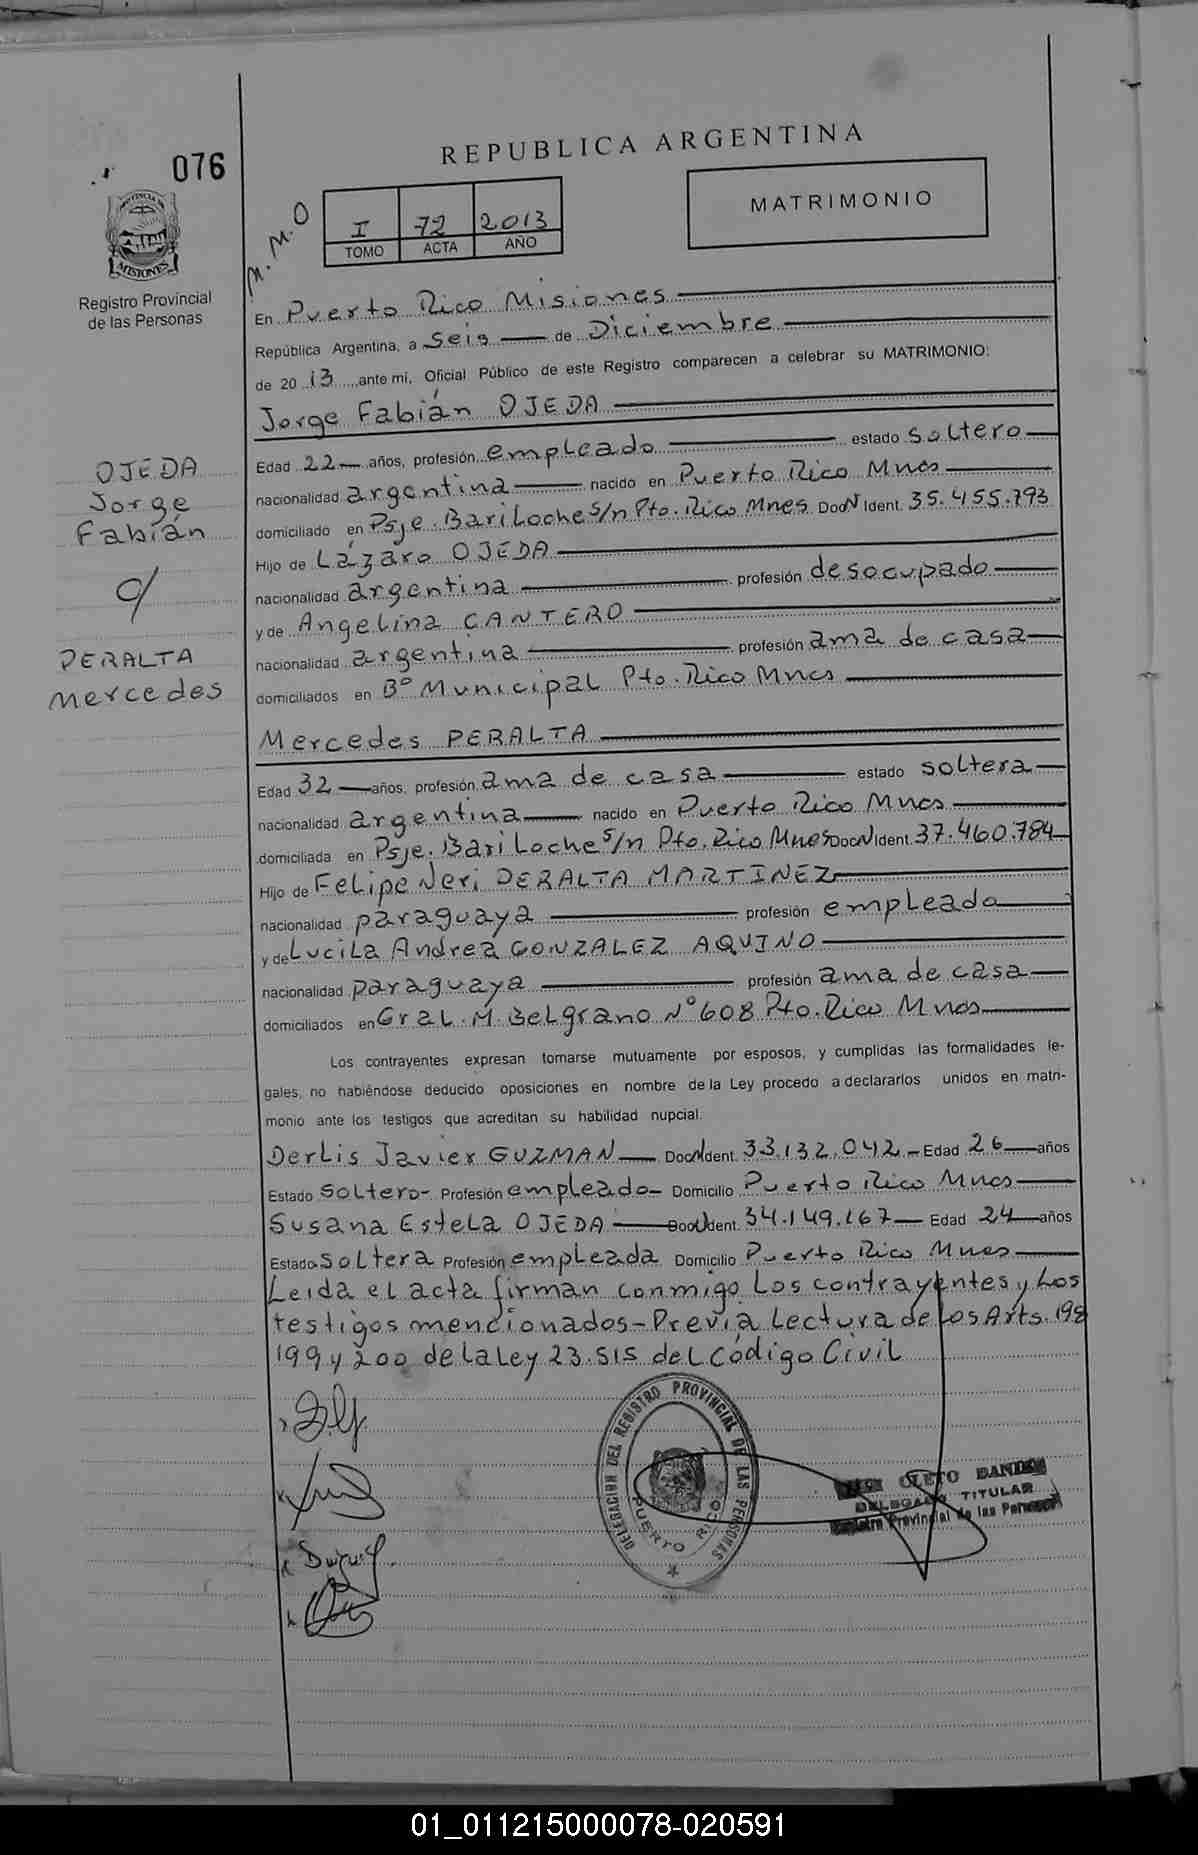 REPUBLICA ARGENTINA
076
MATRIMONIO
M.M.O
I 72 2013
TOMO ACTA AÑO
PROVINCIA DE
MISIONES
Registro Provincial
de las Personas
En Puerto Rico Misiones
República Argentina, a Seis de Diciembre
de 2013 ante mi, Oficial Público de este Registro comparecen a celebrar su MATRIMONIO:
Jorge Fabián OJEDA
Edad 22 años, profesión empleado estado soltero
nacionalidad argentina nacido en Puerto Rico Mnes
domiciliado en Psje. Bariloche s/n Pto. Rico Mnes DocN Ident. 35.455.793
Hijo de Lázaro OJEDA
nacionalidad argentina profesión desocupado
y de Angelina CANTERO
nacionalidad argentina profesión ama de casa
domiciliados en B° Municipal Pto. Rico Mnes
OJEDA
Jorge
Fabián
c/
PERALTA
Mercedes
Mercedes PERALTA
Edad 32 años, profesión ama de casa estado soltera
nacionalidad argentina nacido en Puerto Rico Mnes
domiciliada en Psje. Bariloche s/n Pto. Rico Mnes DocN Ident. 37.460.784
Hijo de Felipe Neri PERALTA MARTINEZ
nacionalidad paraguaya profesión empleado
y de Lucila Andrea GONZALEZ AQUINO
nacionalidad paraguaya profesión ama de casa
domiciliados en Gral. M. Belgrano N° 608 Pto. Rico Mnes
Los contrayentes expresan tomarse mutuamente por esposos, y cumplidas las formalidades le-
gales, no habiéndose deducido oposiciones en nombre de la Ley procedo a declararlos unidos en matri-
monio ante los testigos que acreditan su habilidad nupcial.
Derlis Javier GUZMAN DocN Ident. 33.132.042 Edad 26 años
Estado soltero Profesión empleado Domicilio Puerto Rico Mnes
Susana Estela OJEDA DocN Ident. 34.149.167 Edad 24 años
Estado soltera Profesión empleada Domicilio Puerto Rico Mnes
Leida el acta firman conmigo los contrayentes y los
testigos mencionados-Previa lectura de los Arts. 198
199 y 200 de la ley 23.515 del Código Civil
DELEGACION DEL REGISTRO PROVINCIAL DE LAS PERSONAS
PUERTO RICO
CLETO
DELEGADO TITULAR
Registro Provincial de las Personas
01_011215000078-020591